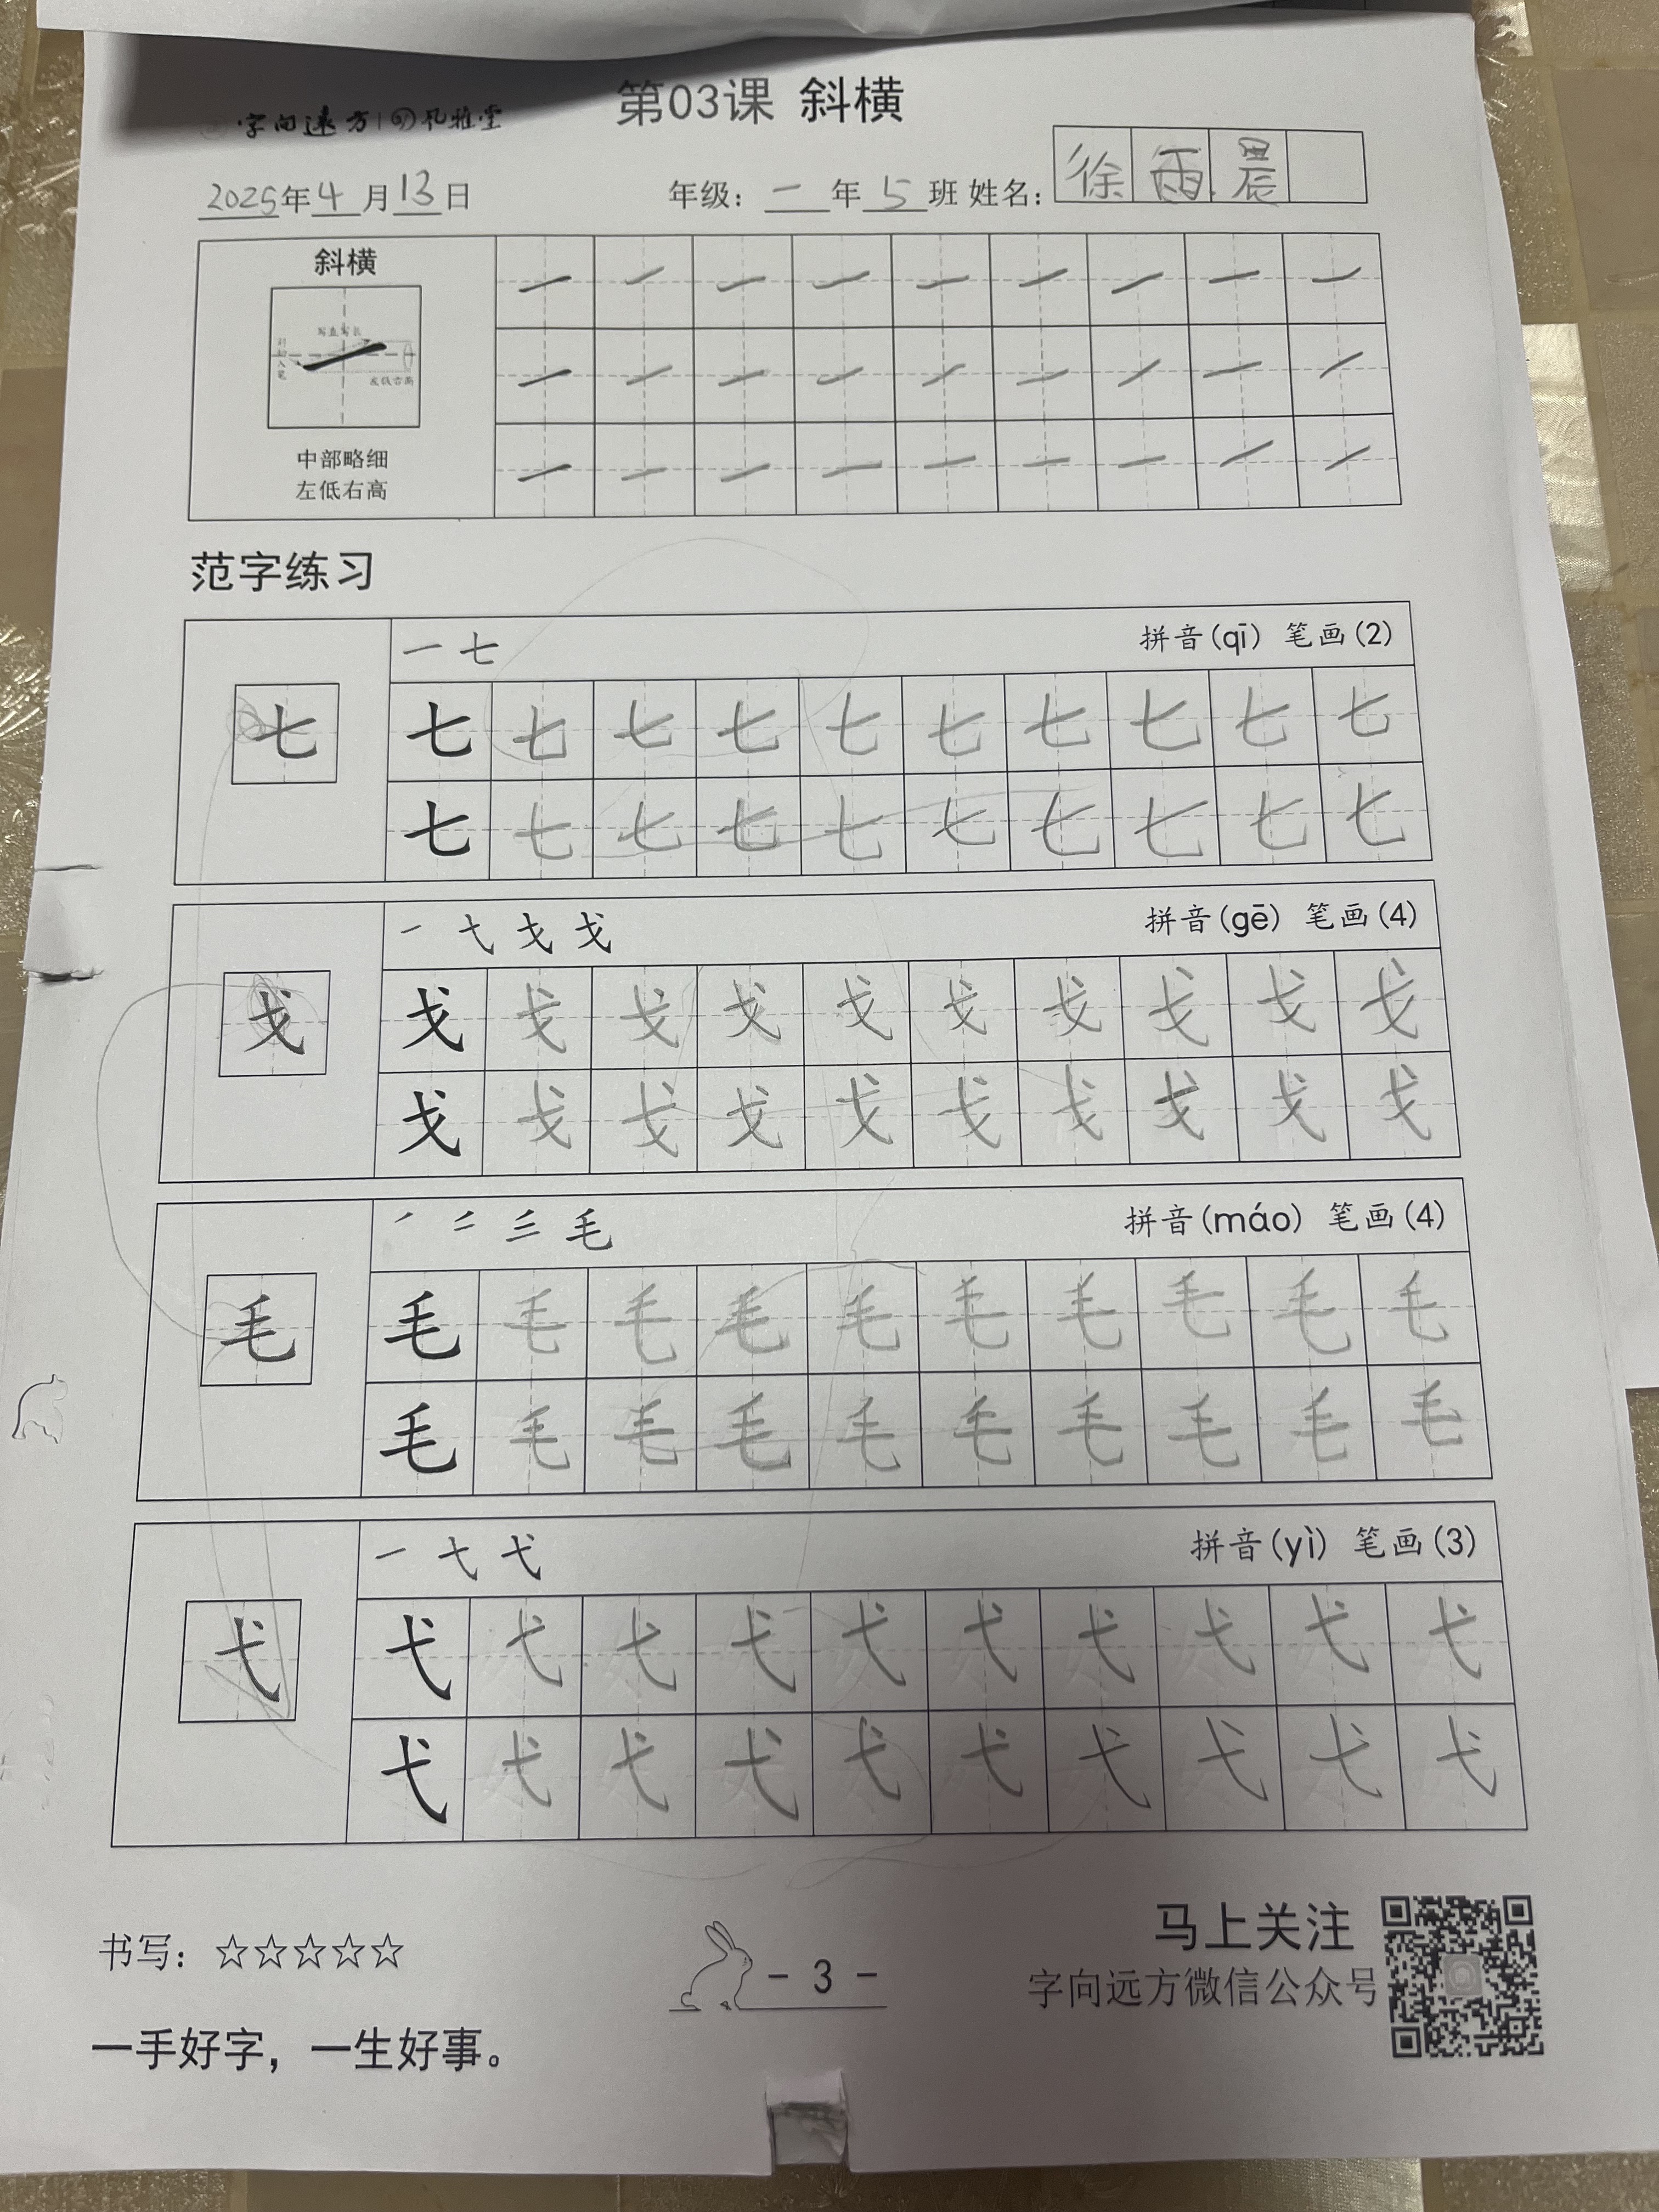 第03课 斜横
字向远方 | 孔雅堂
2025年4月13日 年级：一年5班 姓名：徐雨晨
斜横
写直写长
斜切入笔
左低右高
中部略细
左低右高
一 一 一 一 一 一 一 一 一
一 一 一 一 一 一 一 一 一
一 一 一 一 一 一 一 一 一
范字练习
一 七 拼音(qī) 笔画(2)
七 七 七 七 七 七 七 七 七 七 七
七 七 七 七 七 七 七 七 七 七
一 弋 戈 戈 拼音(gē) 笔画(4)
戈 戈 戈 戈 戈 戈 戈 戈 戈 戈 戈
戈 戈 戈 戈 戈 戈 戈 戈 戈 戈
毛 拼音(máo) 笔画(4)
毛 毛 毛 毛 毛 毛 毛 毛 毛 毛 毛
毛 毛 毛 毛 毛 毛 毛 毛 毛 毛
一 弋 弋 拼音(yì) 笔画(3)
弋 弋 弋 弋 弋 弋 弋 弋 弋 弋 弋
弋 弋 弋 弋 弋 弋 弋 弋 弋 弋
书写：☆☆☆☆☆
- 3 -
马上关注
字向远方微信公众号
一手好字，一生好事。